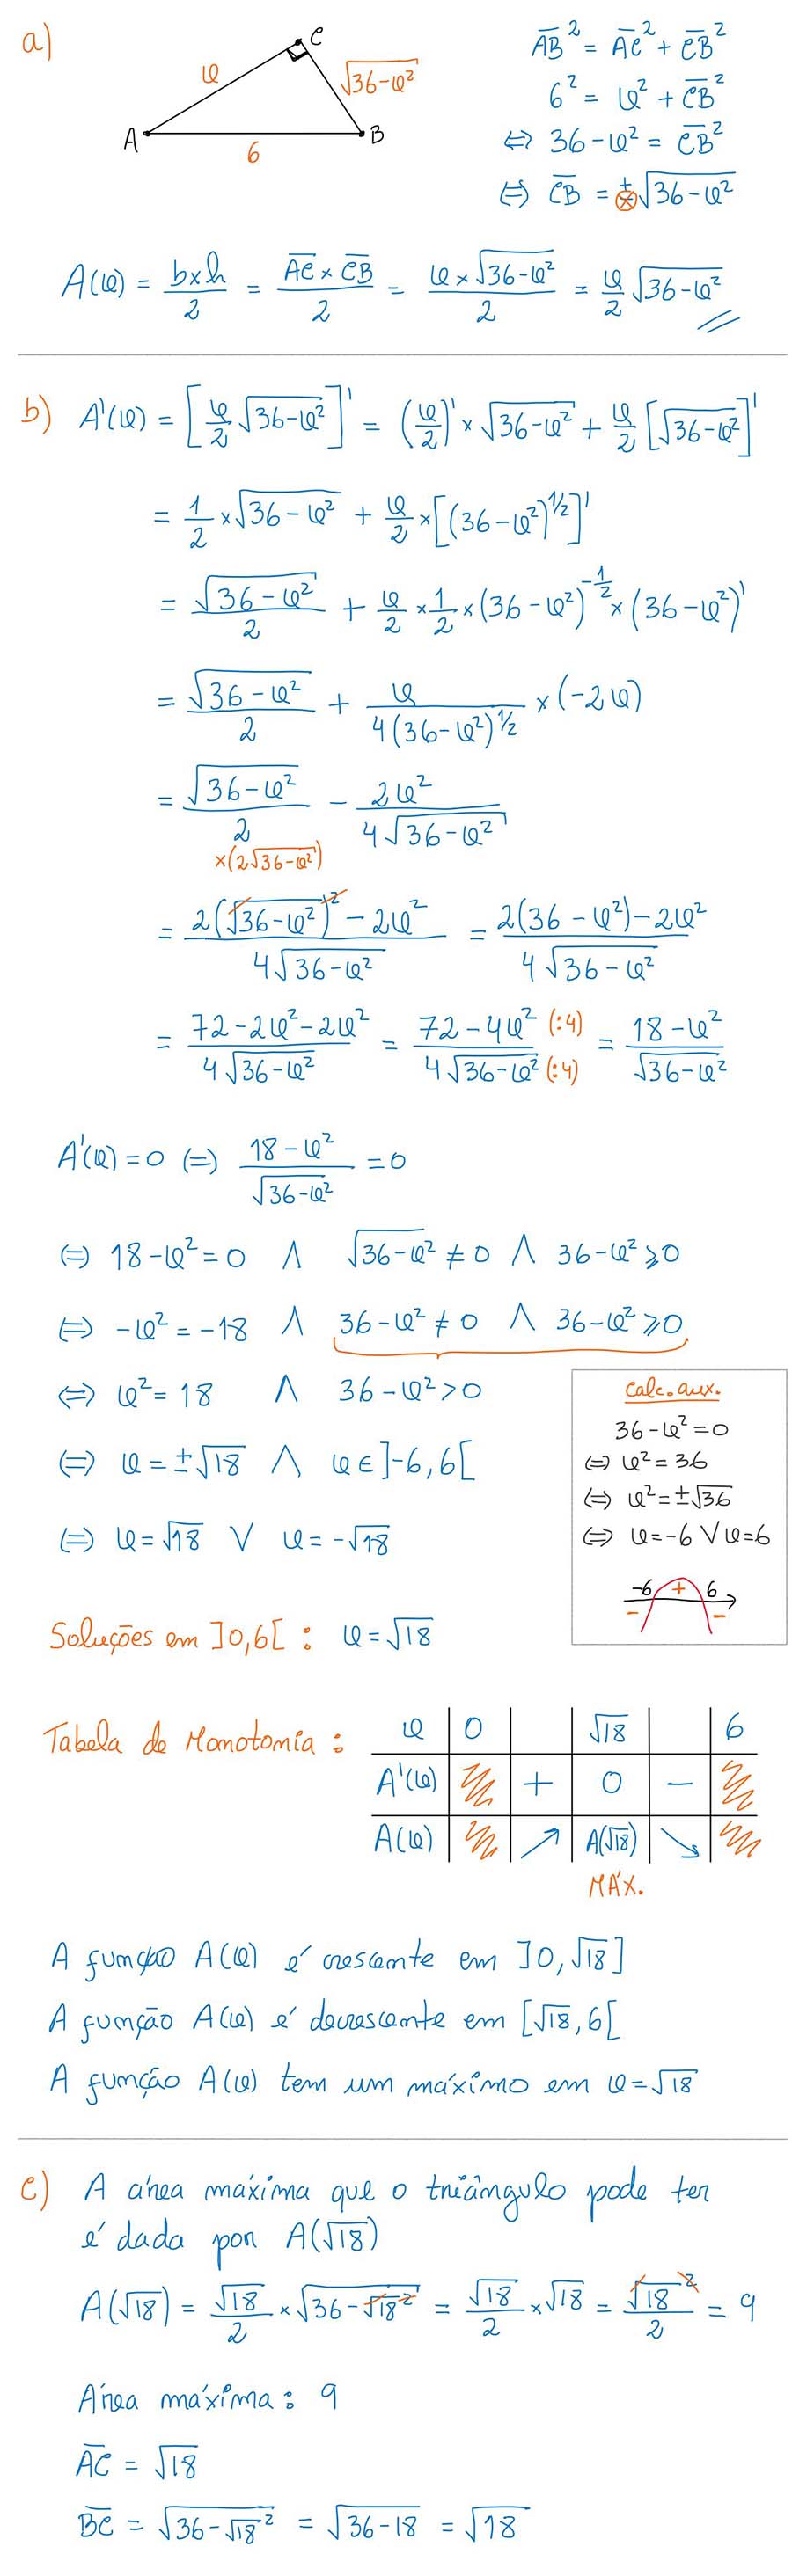 a)
C
x
√(36-x²)
A
B
6
AB̅² = AC̅² + CB̅²
6² = x² + CB̅²
⇔ 36 - x² = CB̅²
⇔ CB̅ = ±√(36-x²)
A(x) = (b×h)/2 = (AC̅ × CB̅)/2 = (x×√(36-x²))/2 = x/2 √(36-x²)
b) A'(x) = [x/2 √(36-x²)]' = (x/2)' × √(36-x²) + x/2 [√(36-x²)]'
= 1/2 × √(36-x²) + x/2 × [(36-x²)^(1/2)]'
= √(36-x²)/2 + x/2 × 1/2 × (36-x²)^(-1/2) × (36-x²)'
= √(36-x²)/2 + x/(4(36-x²)^(1/2)) × (-2x)
= √(36-x²)/2 - 2x²/(4√(36-x²))
×(2√(36-x²))
= (2(√(36-x²))² - 2x²)/(4√(36-x²)) = (2(36-x²)-2x²)/(4√(36-x²))
= (72-2x²-2x²)/(4√(36-x²)) = (72-4x² (:4))/(4√(36-x²) (:4)) = (18-x²)/√(36-x²)
A'(x)=0 (=) (18-x²)/√(36-x²) = 0
(=) 18-x²=0 ∧ √(36-x²) ≠ 0 ∧ 36-x² ≥ 0
⇔ -x² = -18 ∧ 36-x² ≠ 0 ∧ 36-x² ≥ 0
⇔ x² = 18 ∧ 36-x² > 0
(=) x = ±√18 ∧ x ∈ ]-6,6[
(=) x=√18 ∨ x=-√18
Calc. aux.
36-x²=0
⇔ x² = 36
⇔ x²=±√36
⇔ x=-6 ∨ x=6
-6 + 6
- -
Soluções em ]0,6[ : x=√18
Tabela de Monotonia :
x 0 √18 6
A'(x) + 0 -
A(x) ↗ A(√18) ↘
MÁX.
A função A(x) é crescente em ]0,√18]
A função A(x) é decrescente em [√18,6[
A função A(x) tem um máximo em x=√18
c) A área máxima que o triângulo pode ter
é dada por A(√18)
A(√18) = √18/2 × √(36-√18²) = √18/2 × √18 = √18²/2 = 9
Área máxima : 9
AC̅ = √18
BC̅ = √(36-√18²) = √(36-18) = √18